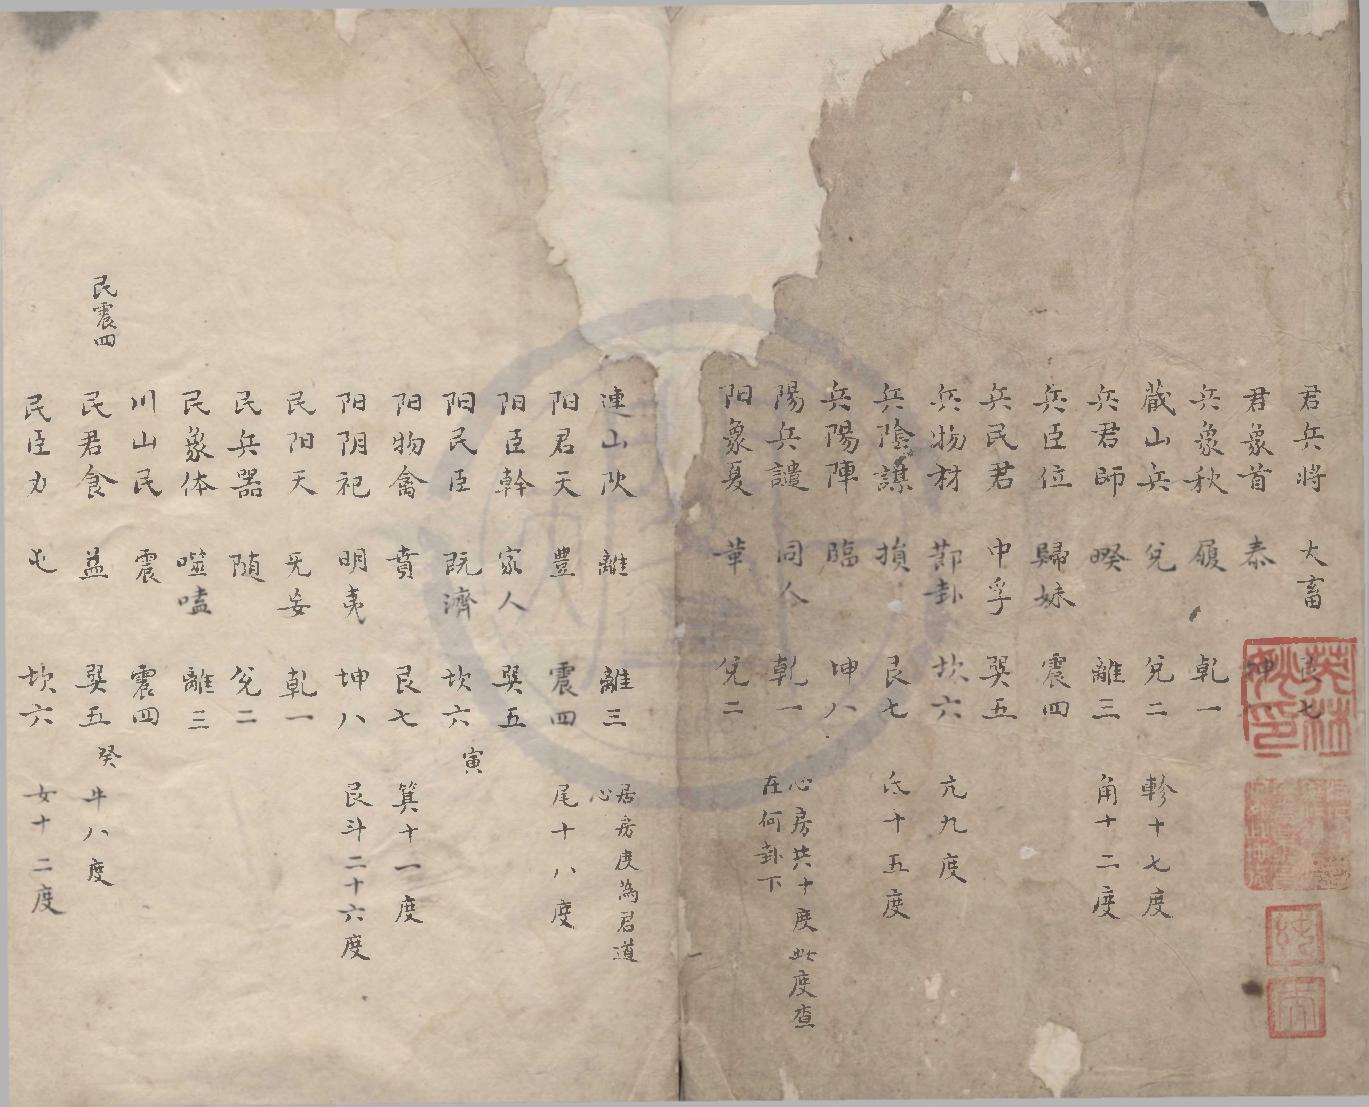 君兵將 大畜 艮七
君象首 泰 坤八
兵象秋 履 乾一
蔵山兵 兌 兌二 軫十七度
兵君師 睽 離三 角十二度
兵臣位 歸妹 震四
兵民君 中孚 巽五
兵物材 節卦 坎六 亢九度
兵陰謀 損 艮七 氐十五度
兵陽陣 臨 坤八
陽兵譴 同人 乾一 心房共十度此度查
在何卦下
阳象夏 革 兌二
連山 離 離三 居房度為君道
心
阳君天 豊 震四 尾十八度
阳臣幹 家人 巽五
阳民臣 既濟 坎六 寅
阳物禽 賁 艮七 箕十一度
阳阴祀 明夷 坤八 艮斗二十六度
民阳天 无妄 乾一
民兵器 随 兌二
民象体 噬嗑 離三
川山民 震 震四
民震四
民君食 益 巽五 癸牛八度
民臣力 屯 坎六 女十二度